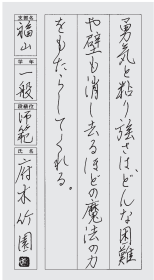 勇気と粘り強さは、どんな困難
や壁も消し去るほどの魔法の力
をもたらしてくれる。
支部名
福山
学年
一般
段級位
師範
氏名
府木竹園